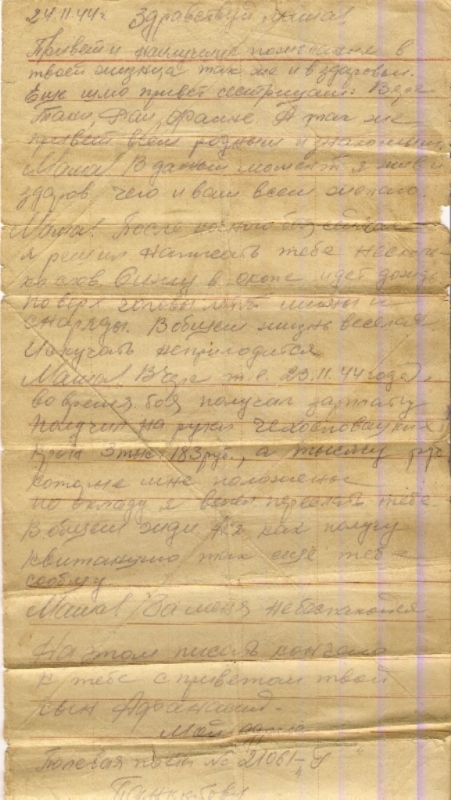 24.11.44г. Здравствуй, Маша!
Привет и наилучшие пожелания в
твоей жизни а так же и в здоровьи.
Еще шлю привет сестрицам: Вере
Тане, Рае, Фаине. А так же
привет всем родным и знакомым
Маша! В данный момент я жив и
здоров чего и вам всем желаю.
Маша! После ночной
я решил написать тебе несколь-
ко слов. Сижу в окопе идет дождь
поверх головы мины и
снаряды. В общем жизнь веселая.
Скучать не приходится
Маша! Вчера т.е. 23.11.44 года,
во время боя получал зарплату
получил на руки чехословацких
крон 3 тыс 183 руб., а тысячу руб
которые мне положены
по окладу я переслать тебе.
В общем жди. как получу
квитанцию так еще тебе
сообщу
Маша! За меня не беспокойся.
На этом письмо кончаю
к тебе с приветом твой
сын
Мой адрес
Полевая почта № 21061-У